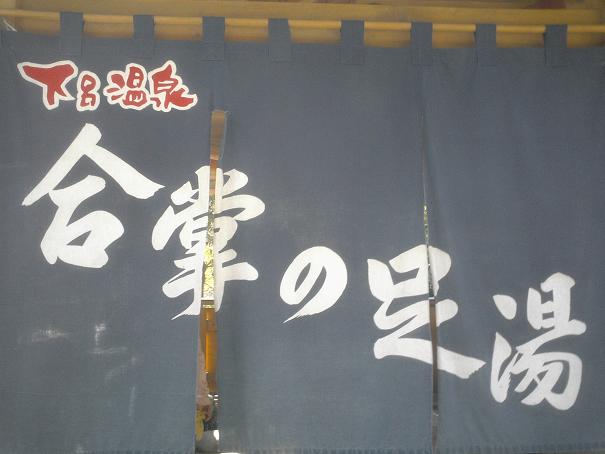 下呂温泉
合掌の足湯